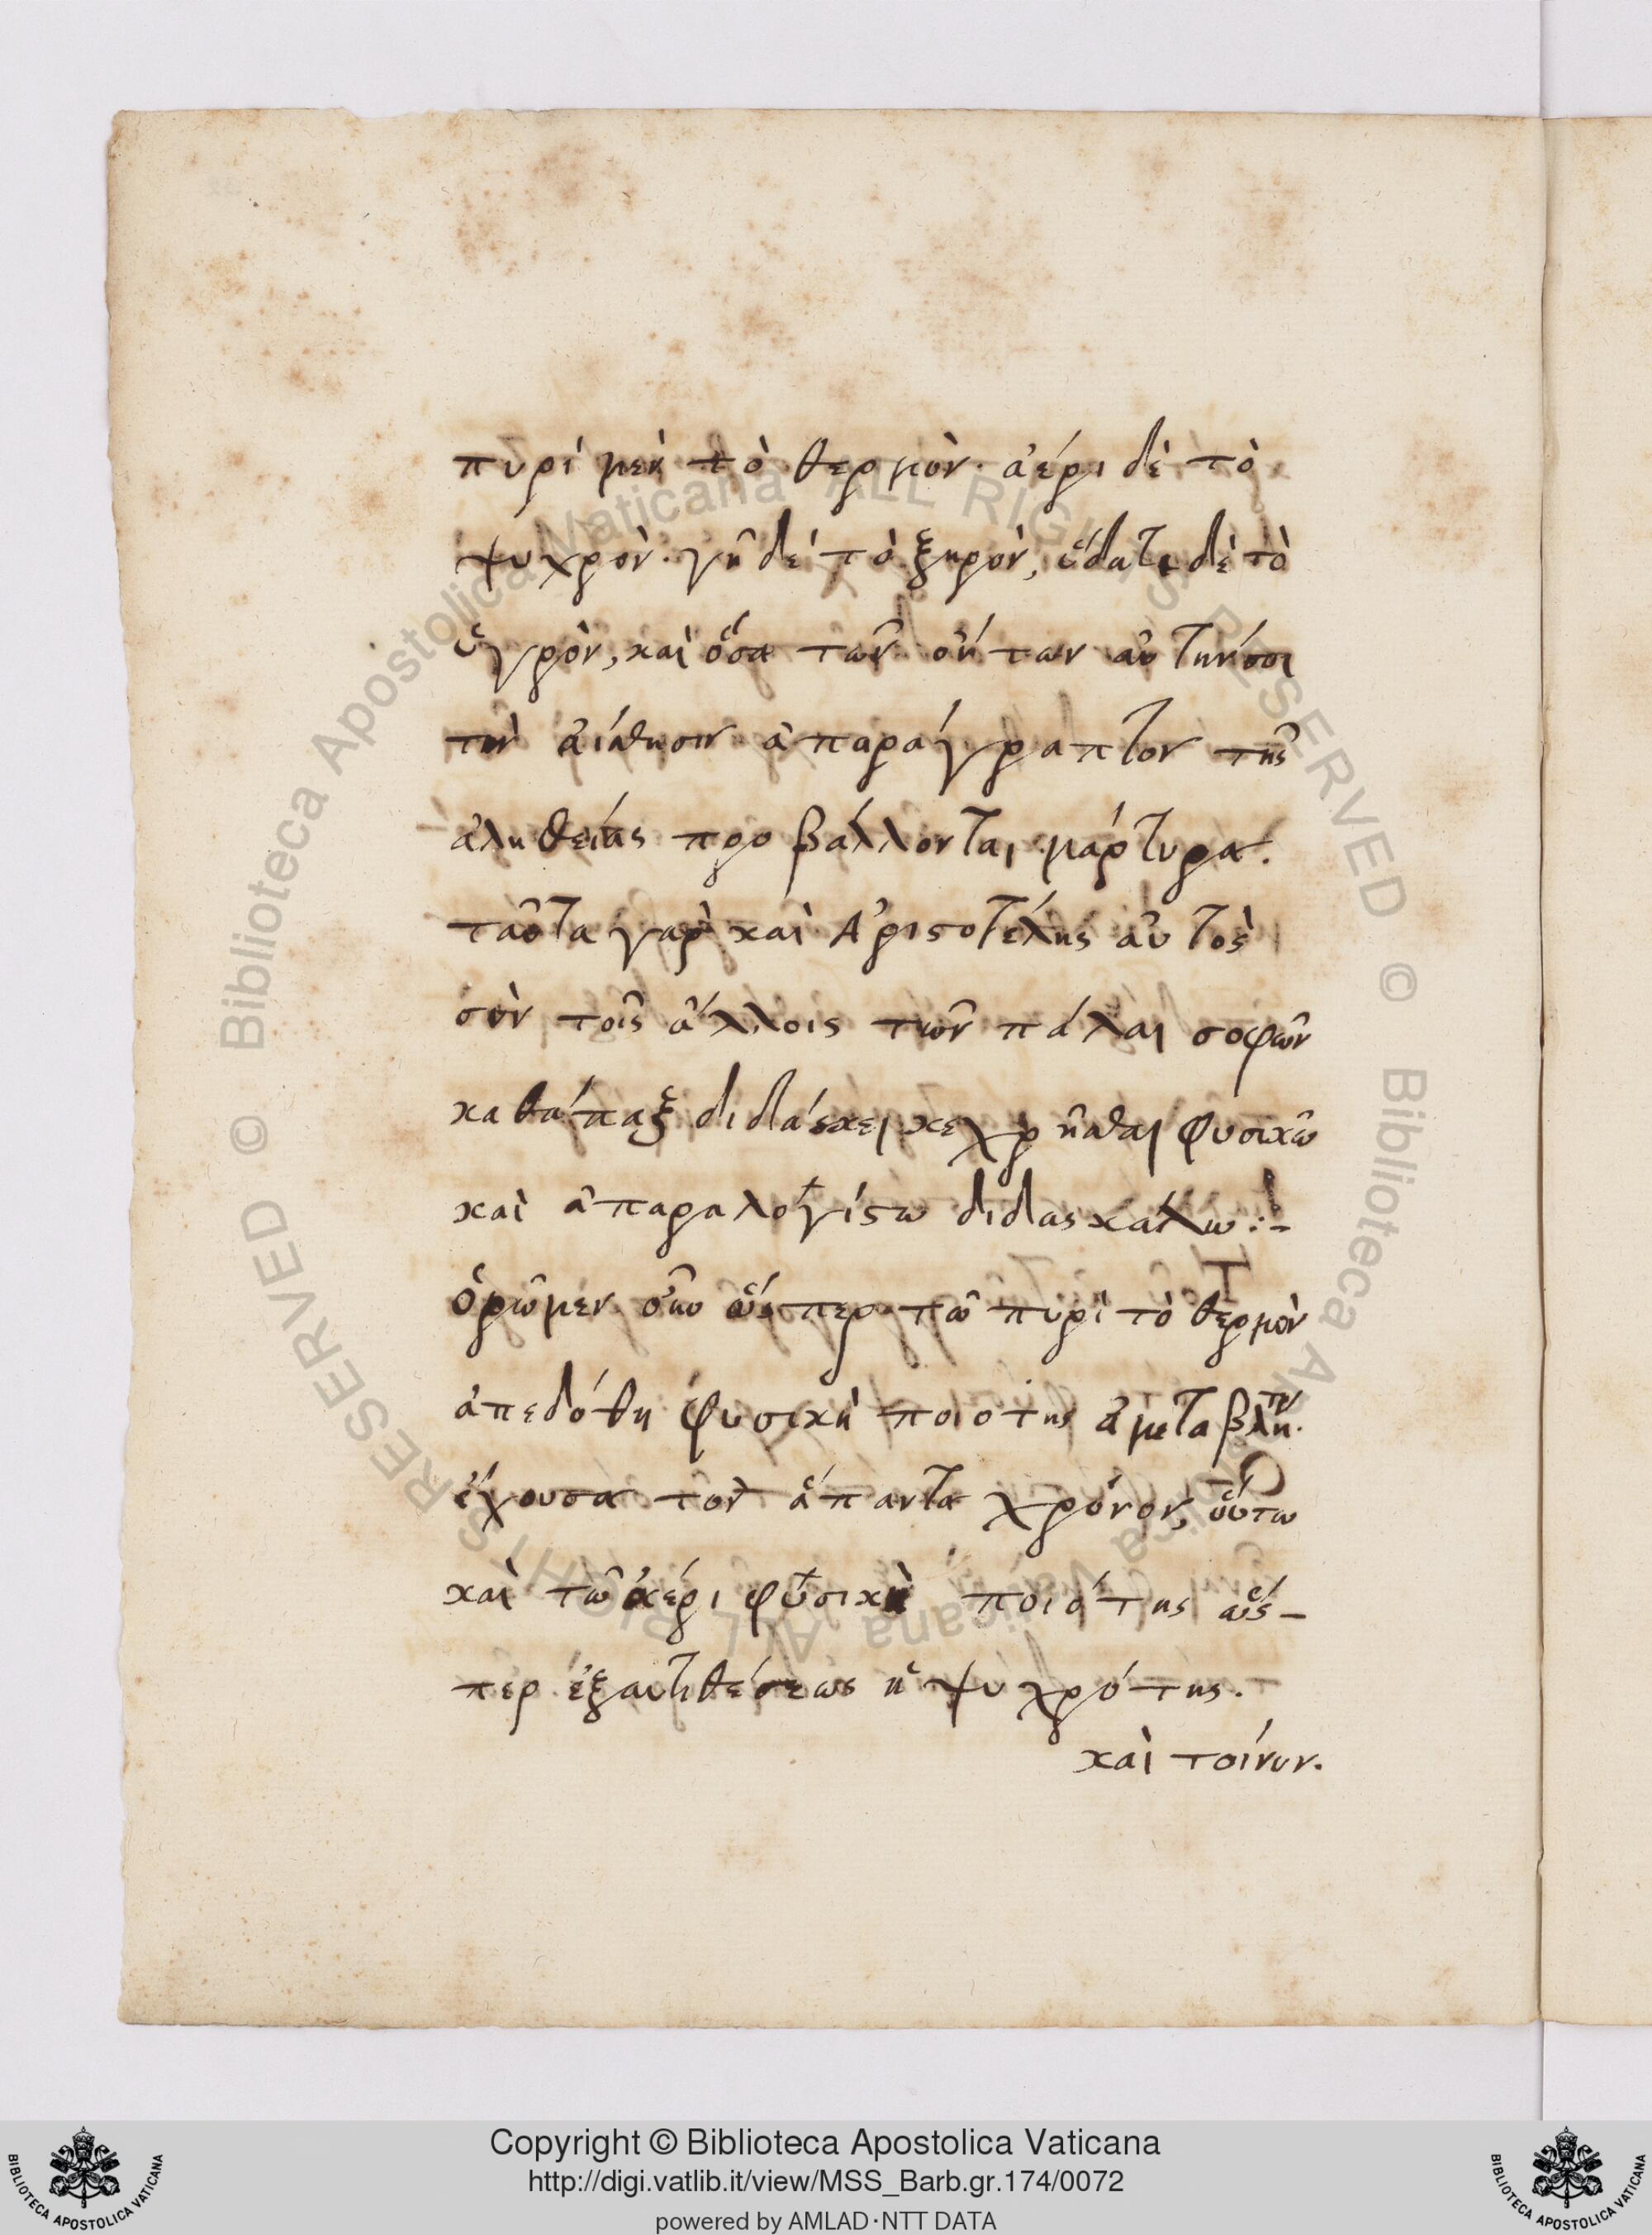 πυρὶ μὲν τὸ θερμὸν· ἀέρι δὲ τὸ
ψυχρὸν· γῆ δὲ τὸ ξηρὸν, ὕδατι δὲ τὸ
ὑγρὸν, καὶ ὅσα τῶν ὄντων αὐτήν σοι
τὴν αἴσθησιν ἀπαράγραπτον τῆς
ἀληθείας προβάλλονται μάρτυρα.
ταῦτα γὰρ καὶ Ἀριστοτέλης αὐτὸς
σὺν τοῖς ἄλλοις τῶν πάλαι σοφῶν
καθάπαξ διδάσκει κεχρῆσθαι φυσικῶ
καὶ ἀπαραλογίστω διδασκάλω :-
ὁρῶμεν οὖν ὥσπερ τῶ πυρὶ τὸ θερμὸν
ἀπεδόθη φυσικὴ ποιότης ἀμετάβλητον
ἔχουσα τὸν ἅπαντα χρόνον, οὕτω
καὶ τῶ ἀέρι φυσικὴ ποιότης ὥσ-
περ ἐξ ἀντιθέσεως ἡ ψυχρότης.
καὶ τοίνυν.
Biblioteca Apostolica Vaticana ALL RIGHTS RESERVED ©
Biblioteca Apostolica Vaticana ALL RIGHTS RESERVED ©
Copyright © Biblioteca Apostolica Vaticana
http://digi.vatlib.it/view/MSS_Barb.gr.174/0072
powered by AMLAD·NTT DATA
BIBLIOTECA APOSTOLICA VATICANA
BIBLIOTECA APOSTOLICA VATICANA